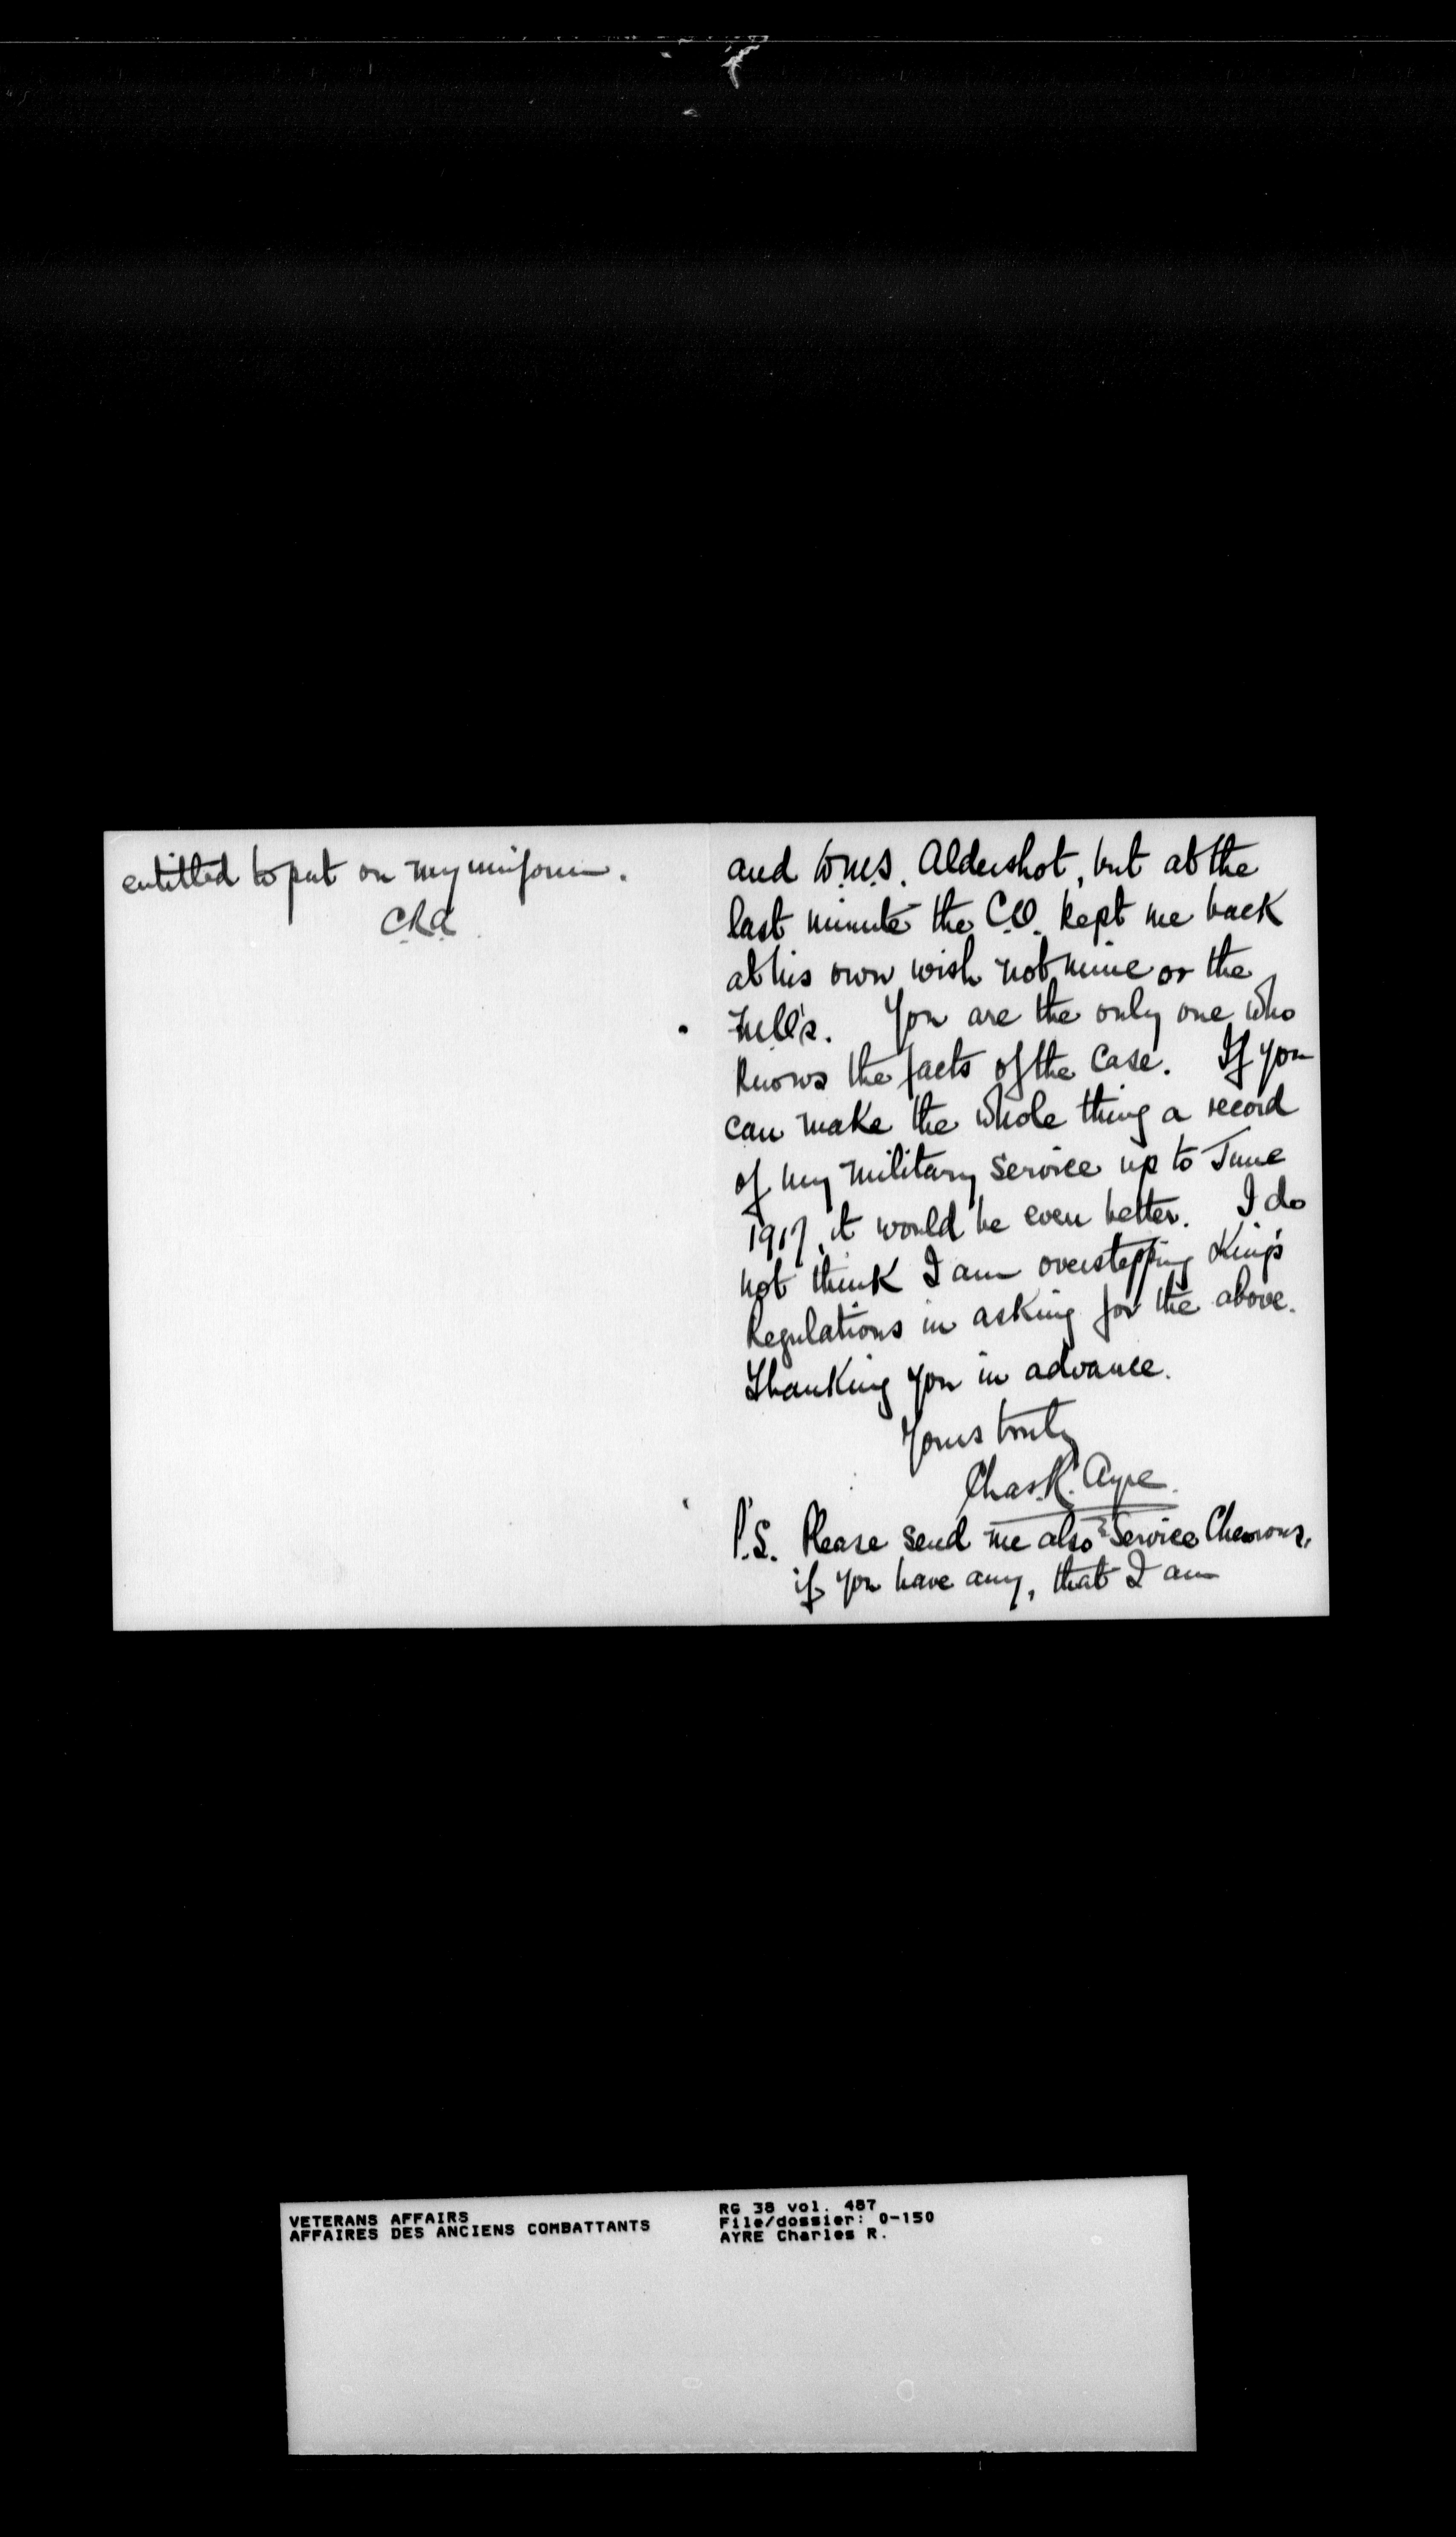 and W.M.S. Aldershot, but at the
last minute the C.O. kept me back
at his own wish not mine or the
You are the only one who
knows the facts of the case. If you
can make the whole thing a record
of my military service up to June
1917, it would be even better. I do
not think I am overstepping King's
Regulations in asking for the above.
Thanking you in advance.
Yours truly
Chas. R. Ayre.
P.S. Please send me also Service Chevrons,
if you have any, that I am
entitled to put on my uniform.
C.R.A.
VETERANS AFFAIRS
AFFAIRES DES ANCIENS COMBATTANTS
RG 38 vol. 487
File/dossier: 0-150
AYRE Charles R.